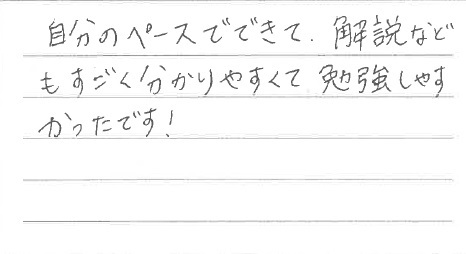 自分のペースでできて、解説など
もすごく分かりやすくて勉強しやす
かったです!